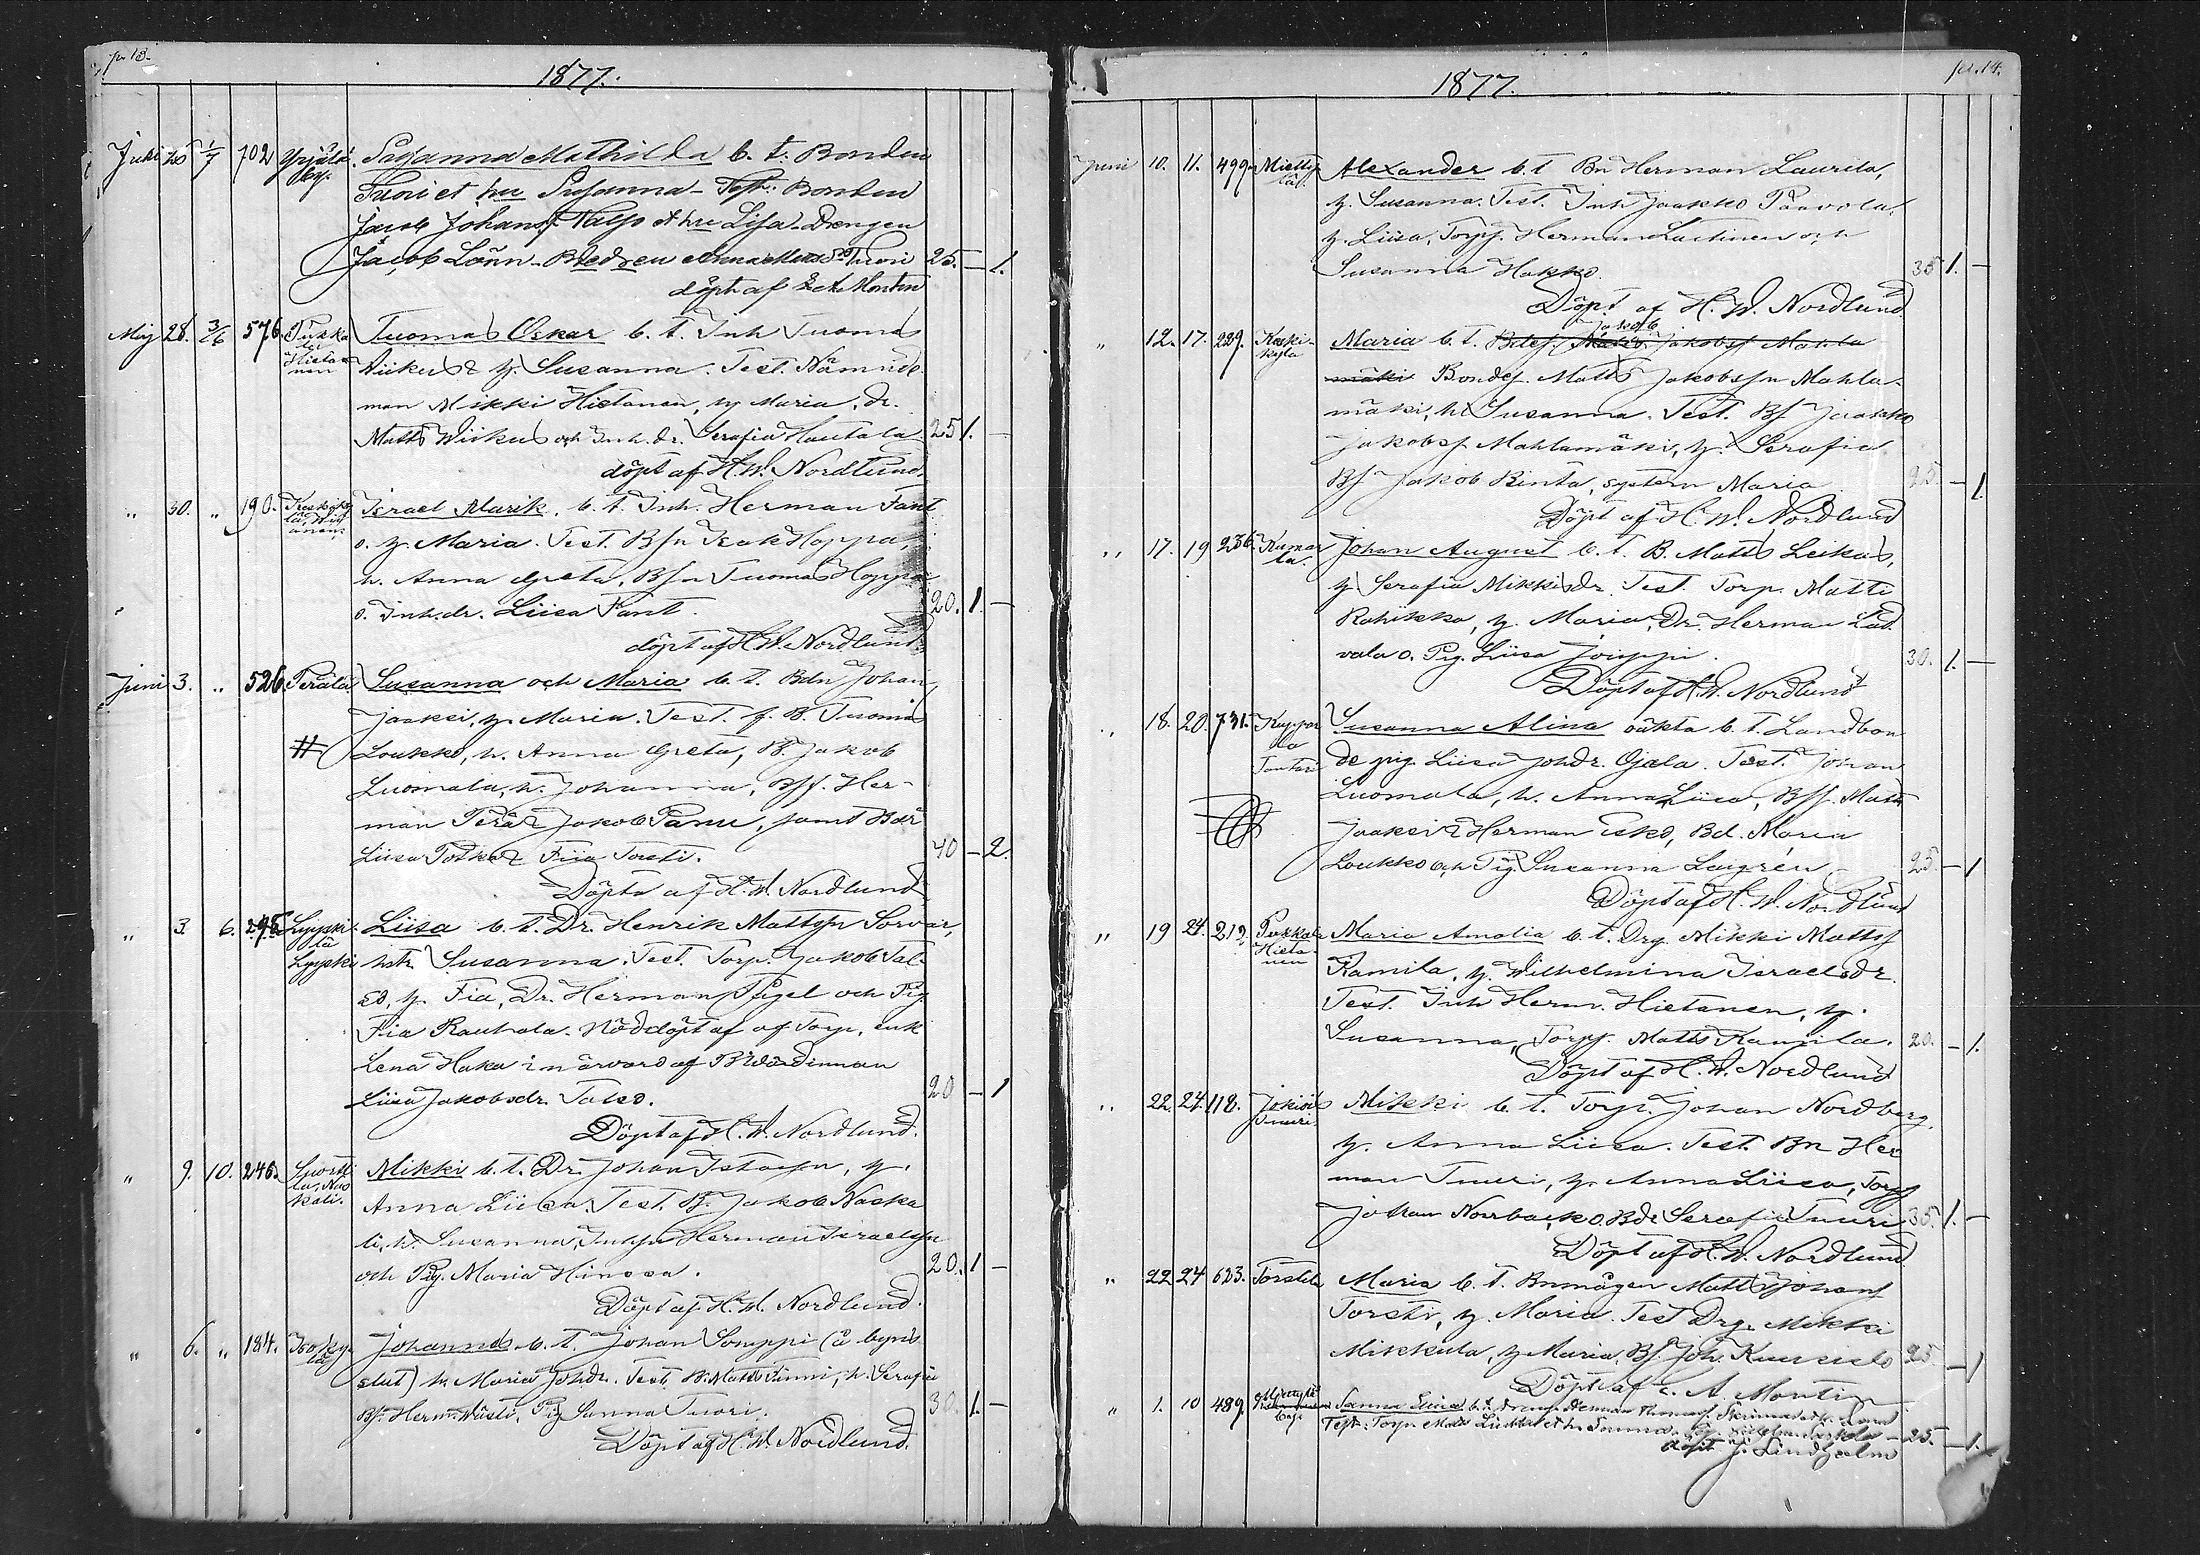 p. 13.
1877.
Juni 25 1/7 702 Yrjälä by. Susanna Mathilda b. t. Bonden
Tuori et hu Susanna - Test: Bonden
Jacob Johans. et hu Lisa. Drengen
Jacob Lönn - Anna Tuori 25. — 1.
döpt af Montin
Maj 28. 3/6 576. Pukka la Hieta nen Tuomas Oskar b. t. Inh Tuomas
Wiikus & h. Susanna. Test. Nämnde
man Mikki Hietanen, h Maria, dr.
Matts Wiikus och Inh. dr. Serafia Hautala 25 1. —
döpt af H. W. Nordlund
" 30. " 190. Keskiky lä, Israel Marik. b. t. Inh. Herman Fant
o. h. Maria. Test. Bsn Isak Hoppa,
h. Anna Greta, Bsn Tuomas Hoppa
o. Inh.dr. Liisa Fant. 20. 1. —
döpt af H. W. Nordlund
Juni 3. " 526. Perälä Susanna och Maria b. t. Bdn Johan
Jaaksi, h. Maria. Test. f. B. Tuomas
# Loukko, h. Anna Greta, B. Jakob
Luomala, h. Johanna, Bsf. Her-
man Perä & Jakob Panu, samt Bdr
Liisa & Fiia Torsti. 40 — 2.
Döpta af H. W. Nordlund
" 3. 6. 295 Lyyski lä Lyyski Liisa b. t. Dr. Henrik Mattsn Sorvar,
hstr Susanna. Test. Torp. Jakob Tal-
so, h. Fia, Dr. Herman Pügel och Pig
Fia Rauhala. Nöddöpt af af Torp. enk
Lena Haka i närvaro af
Liisa Jakobsdr. Talso. 20 — 1
Döpt af H. W. Nordlund.
" 9. 10. 246. Suortti la, Nas kali. Mikki b. t. Dr. Johan h.
Anna Liisa. Test. B. Jakob Naska
li, h. Susanna, Herman Israelsn
och Pig. Maria Hinssa. 20. 1 —
Döpt af H. W. Nordlund.
" 6. " 184. Isoky lä Johannes b. t. Johan Somppi (å byns
slut) h. Maria Johdr. Test. B. Matts h. Serafia
Bs. Herm. Pig Sanna Tuori. 30. 1. —
Döpt af H. W. Nordlund.
pa. 14.
1877.
Juni 10. 11. 499. Mietty lä. Alexander b. t Bn Herman Laurila,
h. Susanna. Test. Inh Jaakko Paavola,
h. Liisa, Torps. Herman Lastinen och
Susanna Hakko. 35 1. —
Döpt af H. W. Nordlund
" 12. 17. 229. Keski- kylä Maria b. t. Jakobs Mahla
mäki Bondes. Matts Jakobssn Mahla-
mäki, h. Susanna. Test. Bs Jaakko
Jakobs. Mahlamäki, h. Serafia
Bs Jakob Rinta, systern Maria 25. — 1.
Döpt af H. W. Nordlund
" 17. 19 236. Kamar la. Johan August b. t. B. Matts Leikas,
h Serafia Mikkisdr. Test. Torp. Matti
Rahikka, h. Maria, Dr. Herman Lad-
vala o. Pig. Liisa Joippi. 30. 1. —
Döpt af H. W. Nordlund
" 18. 20. 731. Kuppar la Susanna Alina oäkta b. t. Landbon
de pig. Liisa Johdr. Ojala. Test. Johan
Luomala, h. Anna Liisa, Bsf. Matts
Jaaksi & Herman Esko, Bd. Maria
Loukko och Pig. Susanna Laurén 25. — 1
Döpt af H. W. Nordlund
" 19 24. 212 Pukkala Hieta- nen Maria Amalia b. t. Drg. Mikki Matts.
Kamila, h. Wilhelmina Israelsdr.
Test. Inh Herm. Hietanen, h.
Susanna, Torps. Matts Kamila. 20. — 1.
Döpt af H. W. Nordlund
" 22. 24. 118. Tuuri Mikki b. t. Torp. Johan Nordberg,
h. Anna Liisa. Test. Bn Her
man Tuuri, h. Anna Liisa, Torps
Johan Norrback o. Bdr Serafia Tuuri 35. 1. —
Döpt af H. W. Nordlund
" 22 24 623. Torstila Maria b. t. Bnmågen Matts Johans
Torsti, h. Maria. Test Drg. Mikki
Mikkula, h Maria, Bs. Joh. Kuusisto 25. — 1
Döpt af A. Montin
" 1. 10 489. Miettylä by Sanna Liisa b. t. dreng Herman
Test: Torp. Matts et h. Sanna. 25. — 1.
döpt af J. Lindholm